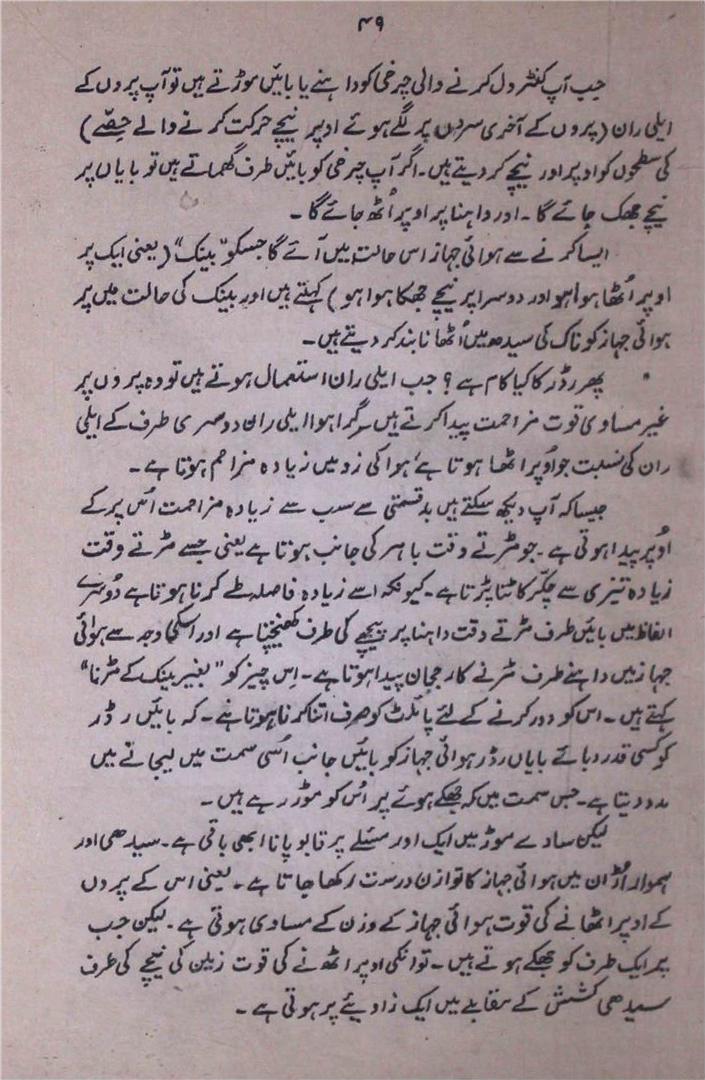 ۴۹
جب آپ کنٹرول کرنے والی چرخی کو داہنے یا بائیں موڑتے ہیں تو آپ پروں کے
ایلی ران (پروں کے آخری سروں پر لگے ہوئے اوپر نیچے حرکت کرنے والے حصّے)
کی سطحوں کو اوپر اور نیچے کر دیتے ہیں۔ اگر آپ چرخی کو بائیں طرف گھماتے ہیں تو بایاں پر
نیچے جھک جائے گا۔ اور داہنا پر اوپر اُٹھ جائے گا۔
ایسا کرنے سے ہوائی جہاز اس حالت میں آئے گا جسکو "بینک" (یعنی ایک پر
اوپر اُٹھا ہوا ہو اور دوسرا پر نیچے جھکا ہوا ہو) کہتے ہیں اور بینک کی حالت میں پر
ہوائی جہاز کو ناک کی سیدھ میں اُٹھانا بند کر دیتے ہیں۔
پھر رڈر کا کیا کام ہے؟ جب ایلی ران استعمال ہوتے ہیں تو وہ پروں پر
غیر مساوی قوت مزاحمت پیدا کرتے ہیں۔ گرا ہوا ایلی ران دوسری طرف کے ایلی
ران کی نسبت جو اوپر اٹھا ہوتا ہے' ہوا کی زد میں زیادہ مزاحم ہوتا ہے۔
جیسا کہ آپ دیکھ سکتے ہیں بدقسمتی سے سب سے زیادہ مزاحمت اُس پر کے
اُوپر پیدا ہوتی ہے۔ جو مڑتے وقت باہر کی جانب ہوتا ہے یعنی جسے مڑتے وقت
زیادہ تیزی سے چکّر کاٹنا پڑتا ہے۔ کیونکہ اسے زیادہ فاصلہ طے کرنا ہوتا ہے دُوسرے
الفاظ میں بائیں طرف مڑتے وقت داہنا پر پیچھے کی طرف کھنچتا ہے اور اسکی وجہ سے ہوائی
جہاز میں داہنے طرف مڑنے کا رجحان پیدا ہوتا ہے۔ اِس چیز کو "بغیر بینک کے مڑنا"
کہتے ہیں۔ اس کو دور کرنے کے لئے پائلٹ کو صرف اتنا کرنا ہوتا ہے۔ کہ بائیں رڈر
کو کسی قدر دبائے بایاں رڈر ہوائی جہاز کو بائیں جانب اُسی سمت میں لیجانے میں
مدد دیتا ہے۔ جس سمت میں کہ جھکے ہوئے پر اُس کو موڑ رہے ہیں۔
لیکن سادے موڑ میں ایک اور مسئلے پر قابو پانا ابھی باقی ہے۔ سیدھی اور
ہموار اُڑان میں ہوائی جہاز کا توازن درست رکھا جاتا ہے۔ یعنی اس کے پروں
کے اوپر اٹھانے کی قوت ہوائی جہاز کے وزن کے مساوی ہوتی ہے۔ لیکن جب
پر ایک طرف کو جھکے ہوتے ہیں۔ تو انکی اوپر اٹھنے کی قوت زمین کی نیچے کی طرف
سیدھی کشش کے مقابلے میں ایک زاویئے پر ہوتی ہے۔